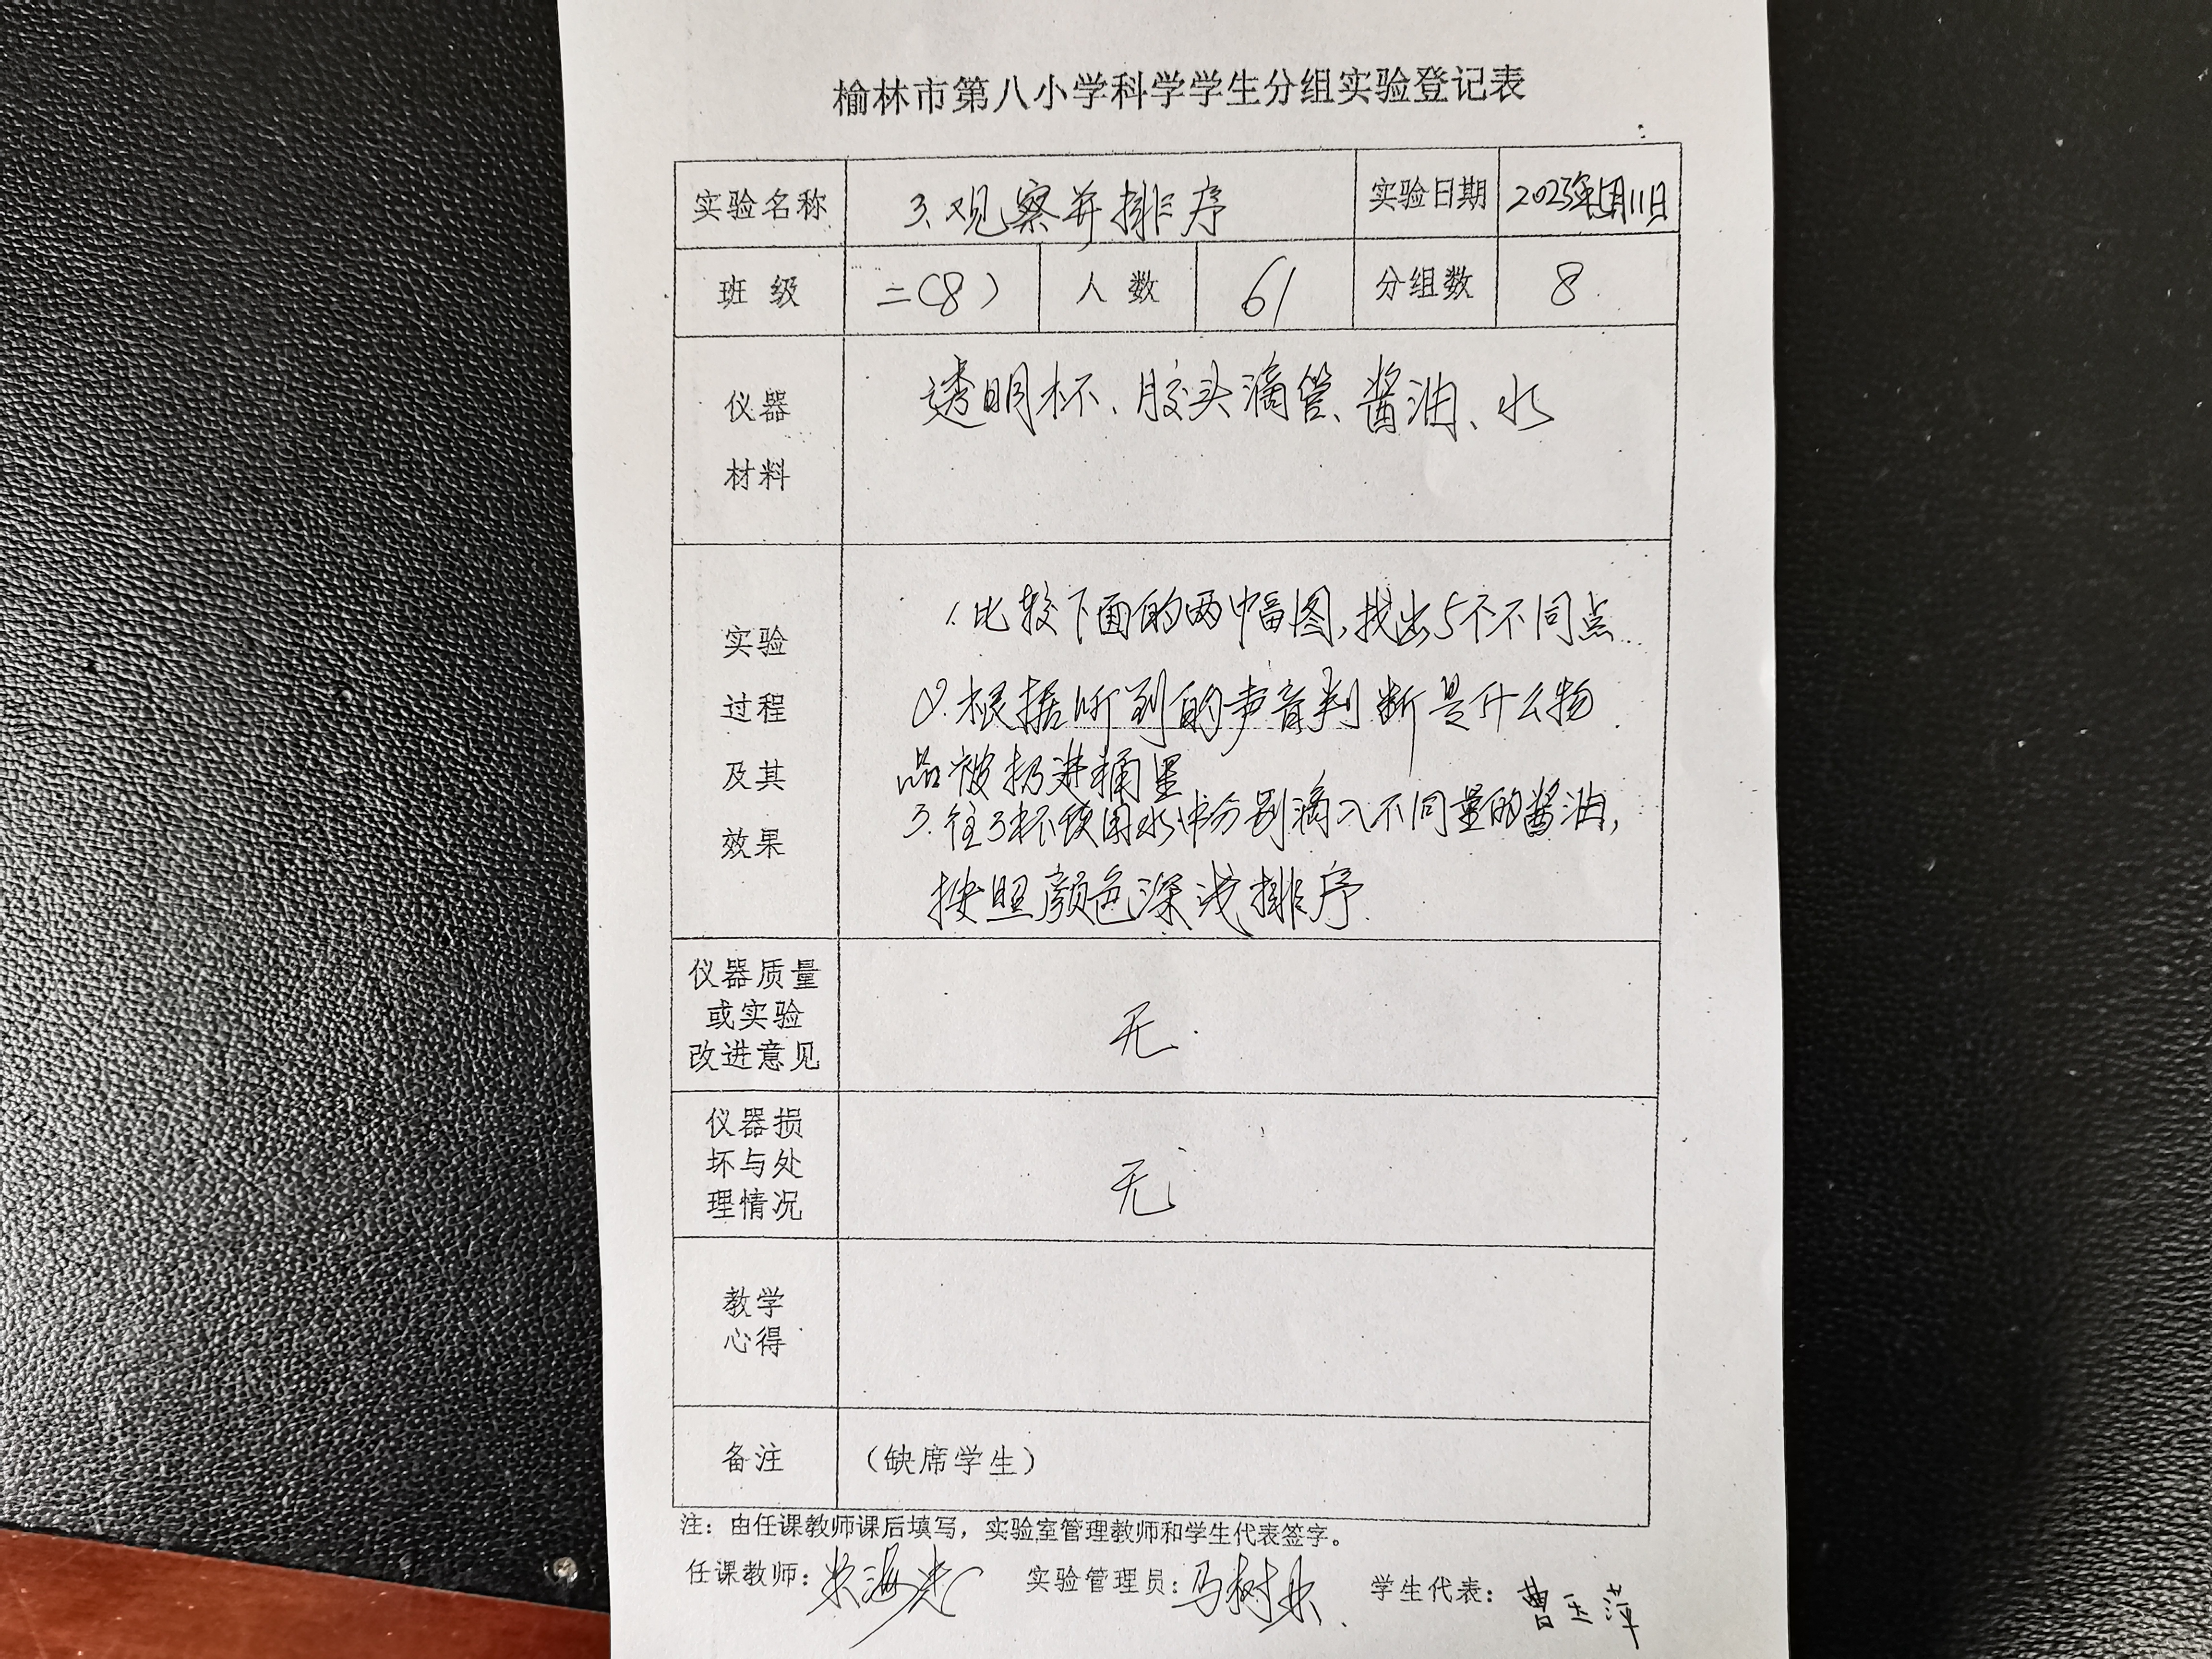 榆林市第八小学科学学生分组实验登记表
实验名称 3.观察并排序 实验日期 2023年5月11日
班级 二(8) 人数 61 分组数 8
仪器 透明杯、胶头滴管、酱油、水
材料
1.比较下面的两幅图,找出5个不同点
实验
2.根据听到的声音判断是什么物
过程
品被扔进桶里
及其
3.往3杯饮用水中分别滴入不同量的酱油,
效果
按照颜色深浅排序.
仪器质量
或实验 无.
改进意见
仪器损
坏与处 无
理情况
教学
心得
备注 (缺席学生)
注：由任课教师课后填写，实验室管理教师和学生代表签字。
任课教师： 实验管理员：马树 学生代表：曹玉萍